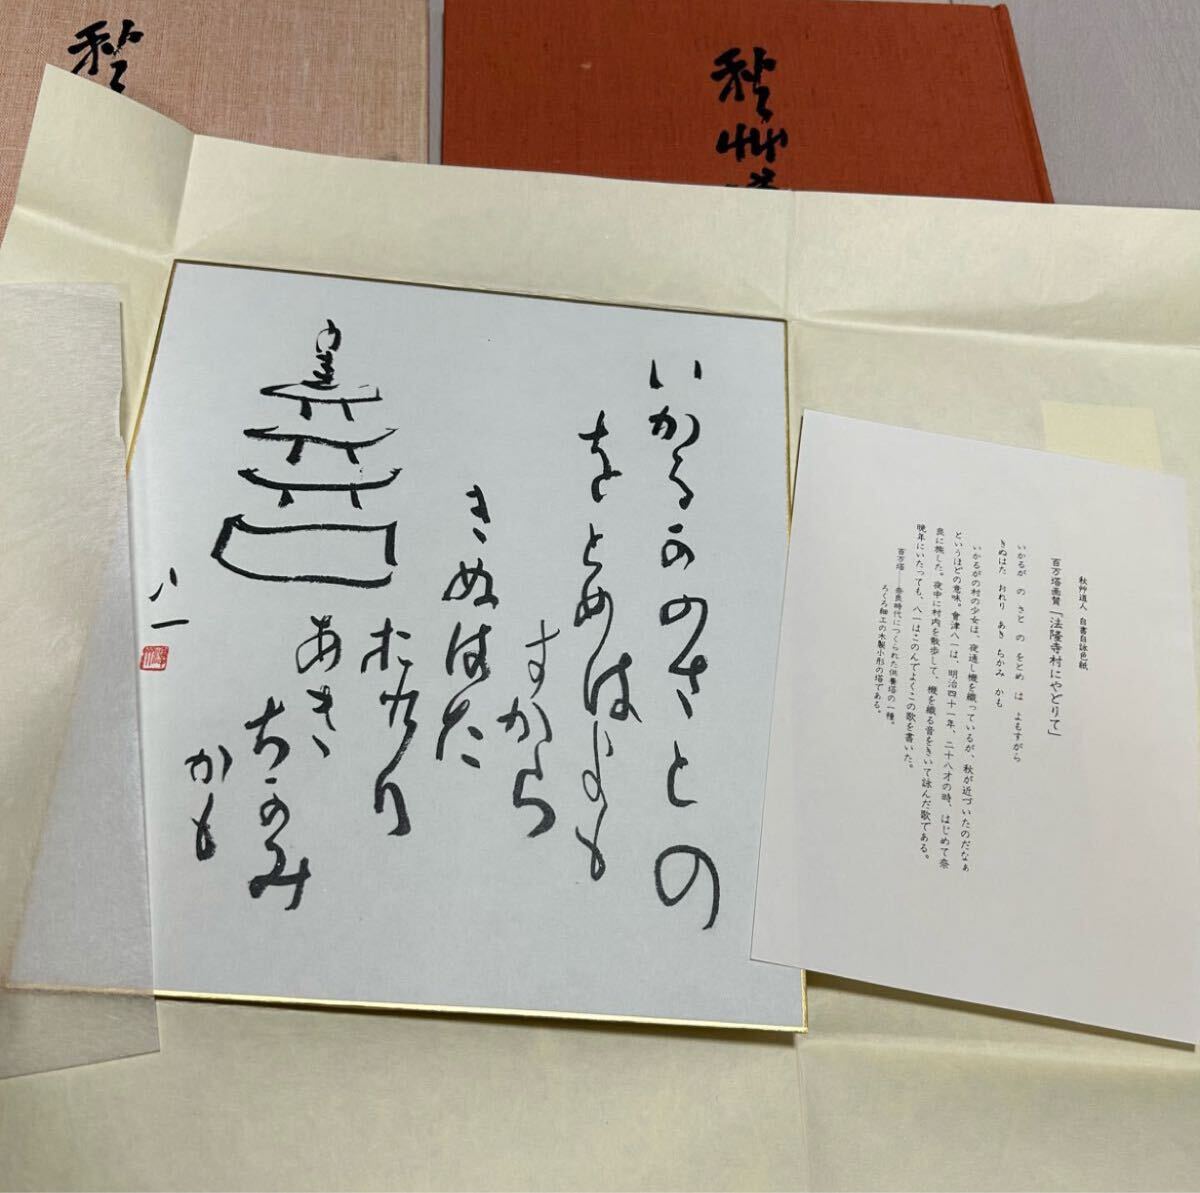 秋
秋艸道
いかるかのさとの
をとめはよも
すから
きぬはた
おれり
あき
ちかみ
かも
八一
秋艸道人 自書自詠色紙
百万塔画賛「法隆寺村にやどりて」
いかるが の さと の をとめ は よもすがら
きぬはた おれり あき ちかみ かも
いかるがの村の少女は、夜通し機を織っているが、秋が近づいたのだなぁ
というほどの意味。會津八一は、明治四十一年、二十八才の時、はじめて奈
良に旅した。夜中に村内を散歩して、機を織る音をきいて詠んだ歌である。
晩年にいたっても、八一はこのんでよくこの歌を書いた。
百万塔――奈良時代につくられた供養塔の一種。
ろくろ細工の木製小形の塔である。